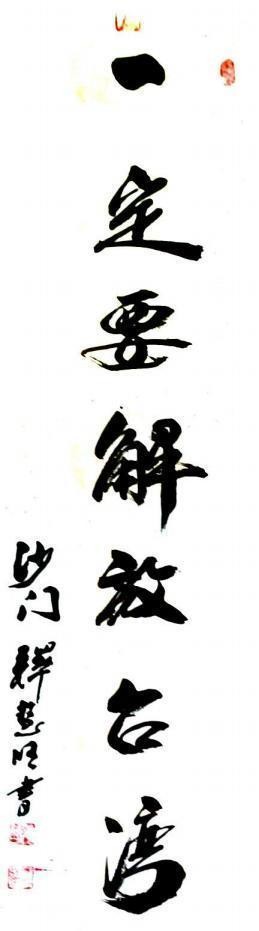 一定要解放台湾
沙门释慧悟书